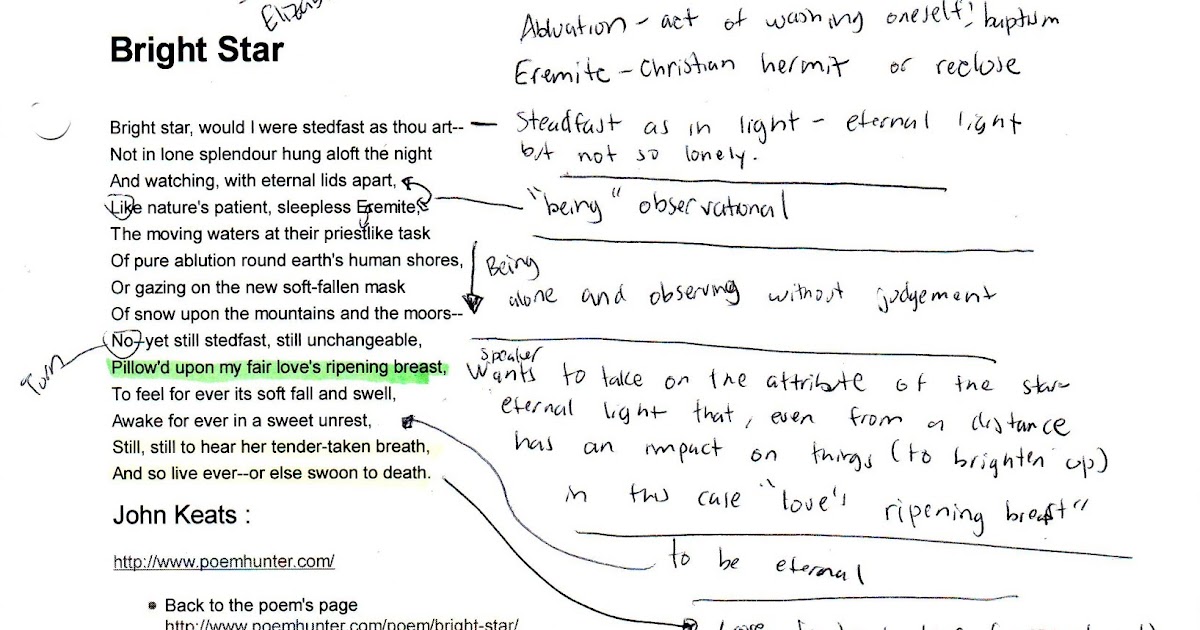 Bright Star
Abluation - act of washing oneself; baptism
Eremite - Christian hermit or reclose
Bright star, would I were stedfast as thou art--
Steadfast as in light - eternal light
but not so lonely.
Not in lone splendour hung aloft the night
And watching, with eternal lids apart,
Like nature's patient, sleepless Eremite,
"being" observational
The moving waters at their priestlike task
Of pure ablution round earth's human shores,
Or gazing on the new soft-fallen mask
Of snow upon the mountains and the moors--
Being
alone and observing without judgement
No--yet still stedfast, still unchangeable,
Turn
Pillow'd upon my fair love's ripening breast,
To feel for ever its soft fall and swell,
Awake for ever in a sweet unrest,
Still, still to hear her tender-taken breath,
And so live ever--or else swoon to death.
speaker
Wants to take on the attribute of the star
eternal light that, even from a distance
has an impact on things (to brighten up)
in this case "love's ripening breast"
to be eternal
John Keats :
http://www.poemhunter.com/
• Back to the poem's page
http://www.poemhunter.com/poem/bright-star/